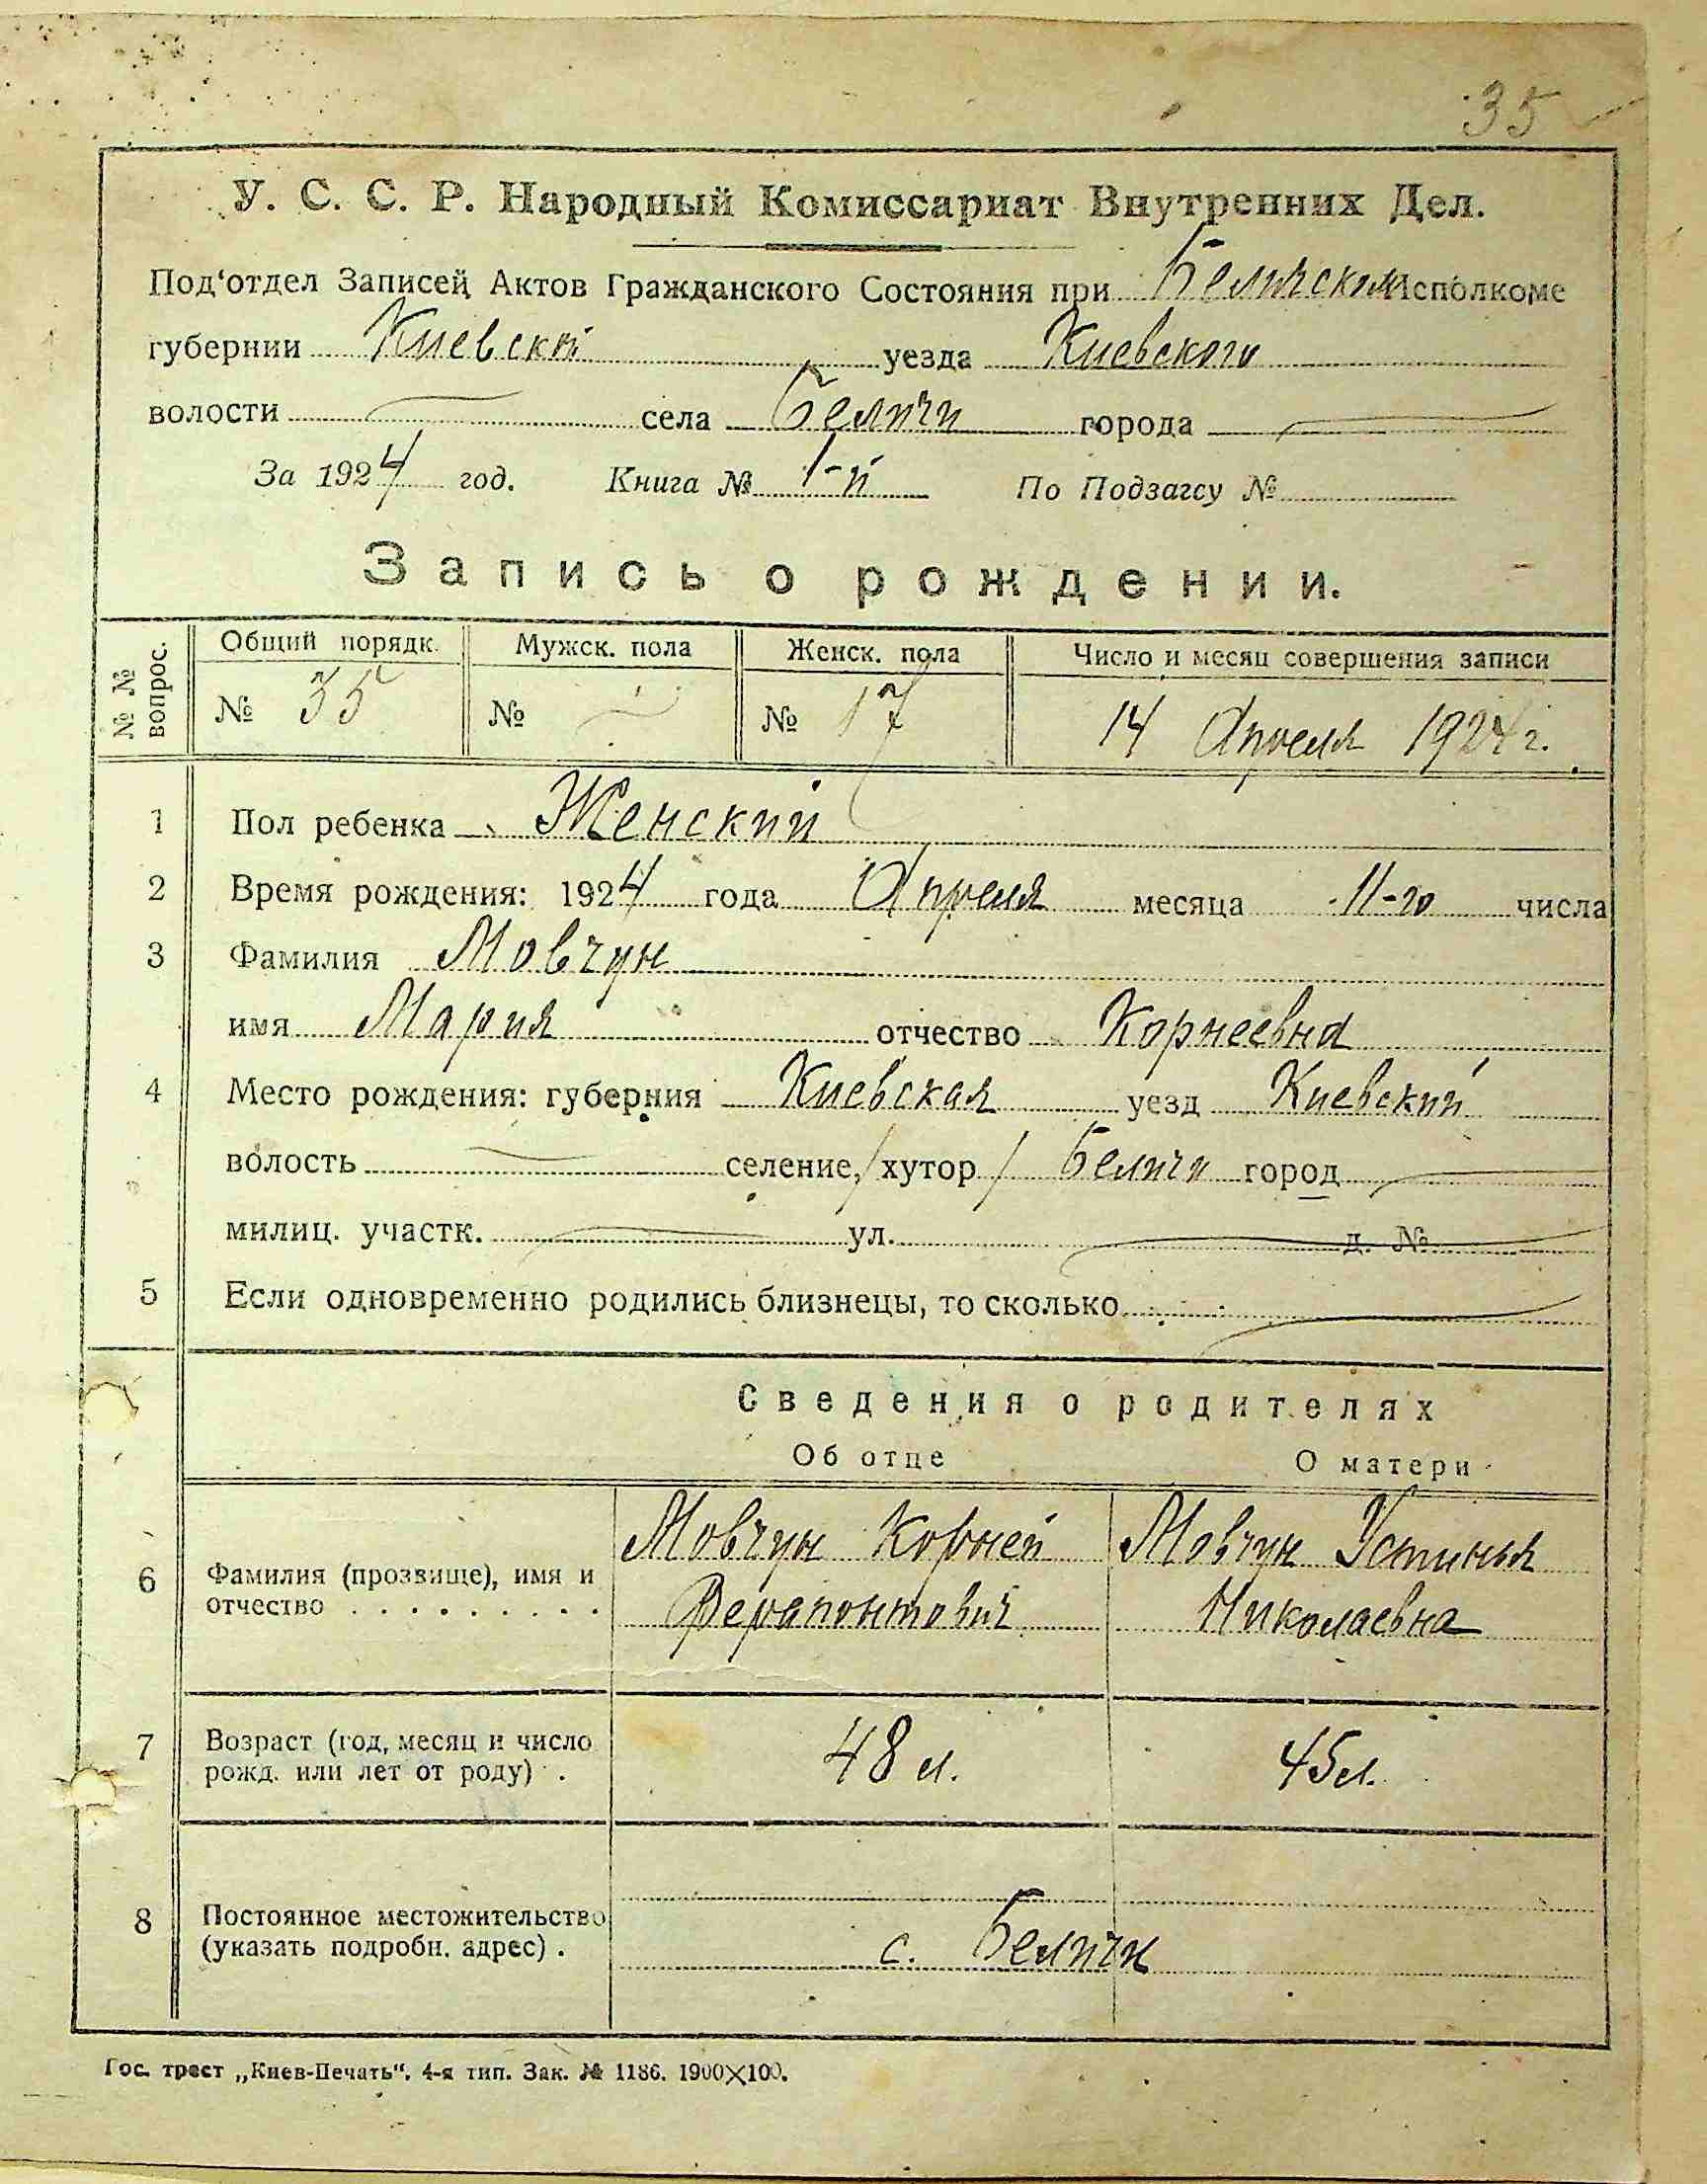 35
У. С. С. Р. Народный Комиссариат Внутренних Дел.
Под‘отдел Записей Актов Гражданского Состояния при Беличском Исполкоме
губернии Киевской уезда Киевского
волости — села Беличи города —
За 1924 год. Книга № 1-й По Подзагсу №
Запись о рождении.
№ № вопрос. Общий порядк. Мужск. пола Женск. пола Число и месяц совершения записи
№ 35 № — № 17 14 Апреля 1924 г.
1 Пол ребенка Женский
2 Время рождения: 1924 года Апреля месяца 11-го числа
3 Фамилия Мовчун
имя Мария отчество Корнеевна
4 Место рождения: губерния Киевская уезд Киевский
волость — селение, /хутор/ Беличи город —
милиц. участк. — ул. — д. №
5 Если одновременно родились близнецы, то сколько —
Сведения о родителях
Об отце О матери
Мовчун Корней Мовчун Устинья
6 Фамилия (прозвище), имя и
отчество . . . . . . . . . Ферапонтович Николаевна
7 Возраст (год, месяц и число 48 л. 45 л.
рожд. или лет от роду) .
8 Постоянное местожительство
(указать подробн. адрес) . с. Беличи
Гос. трест „Киев-Печать“. 4-я тип. Зак. № 1186. 1900×100.